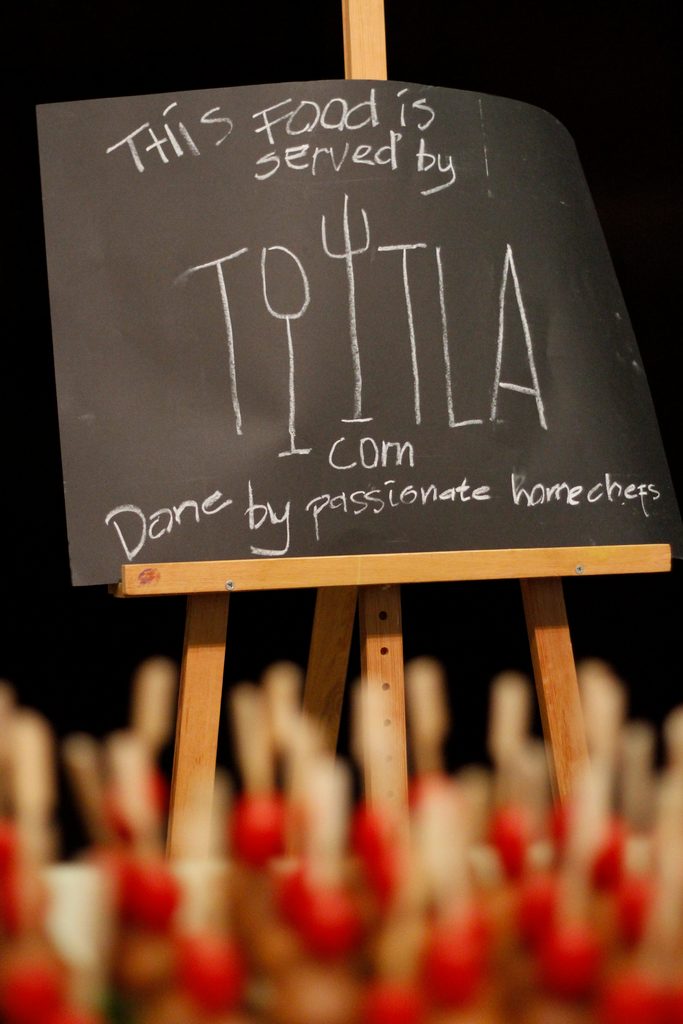 THiS Food is
served by
TOYTLA
com
Done by passionate homechefs